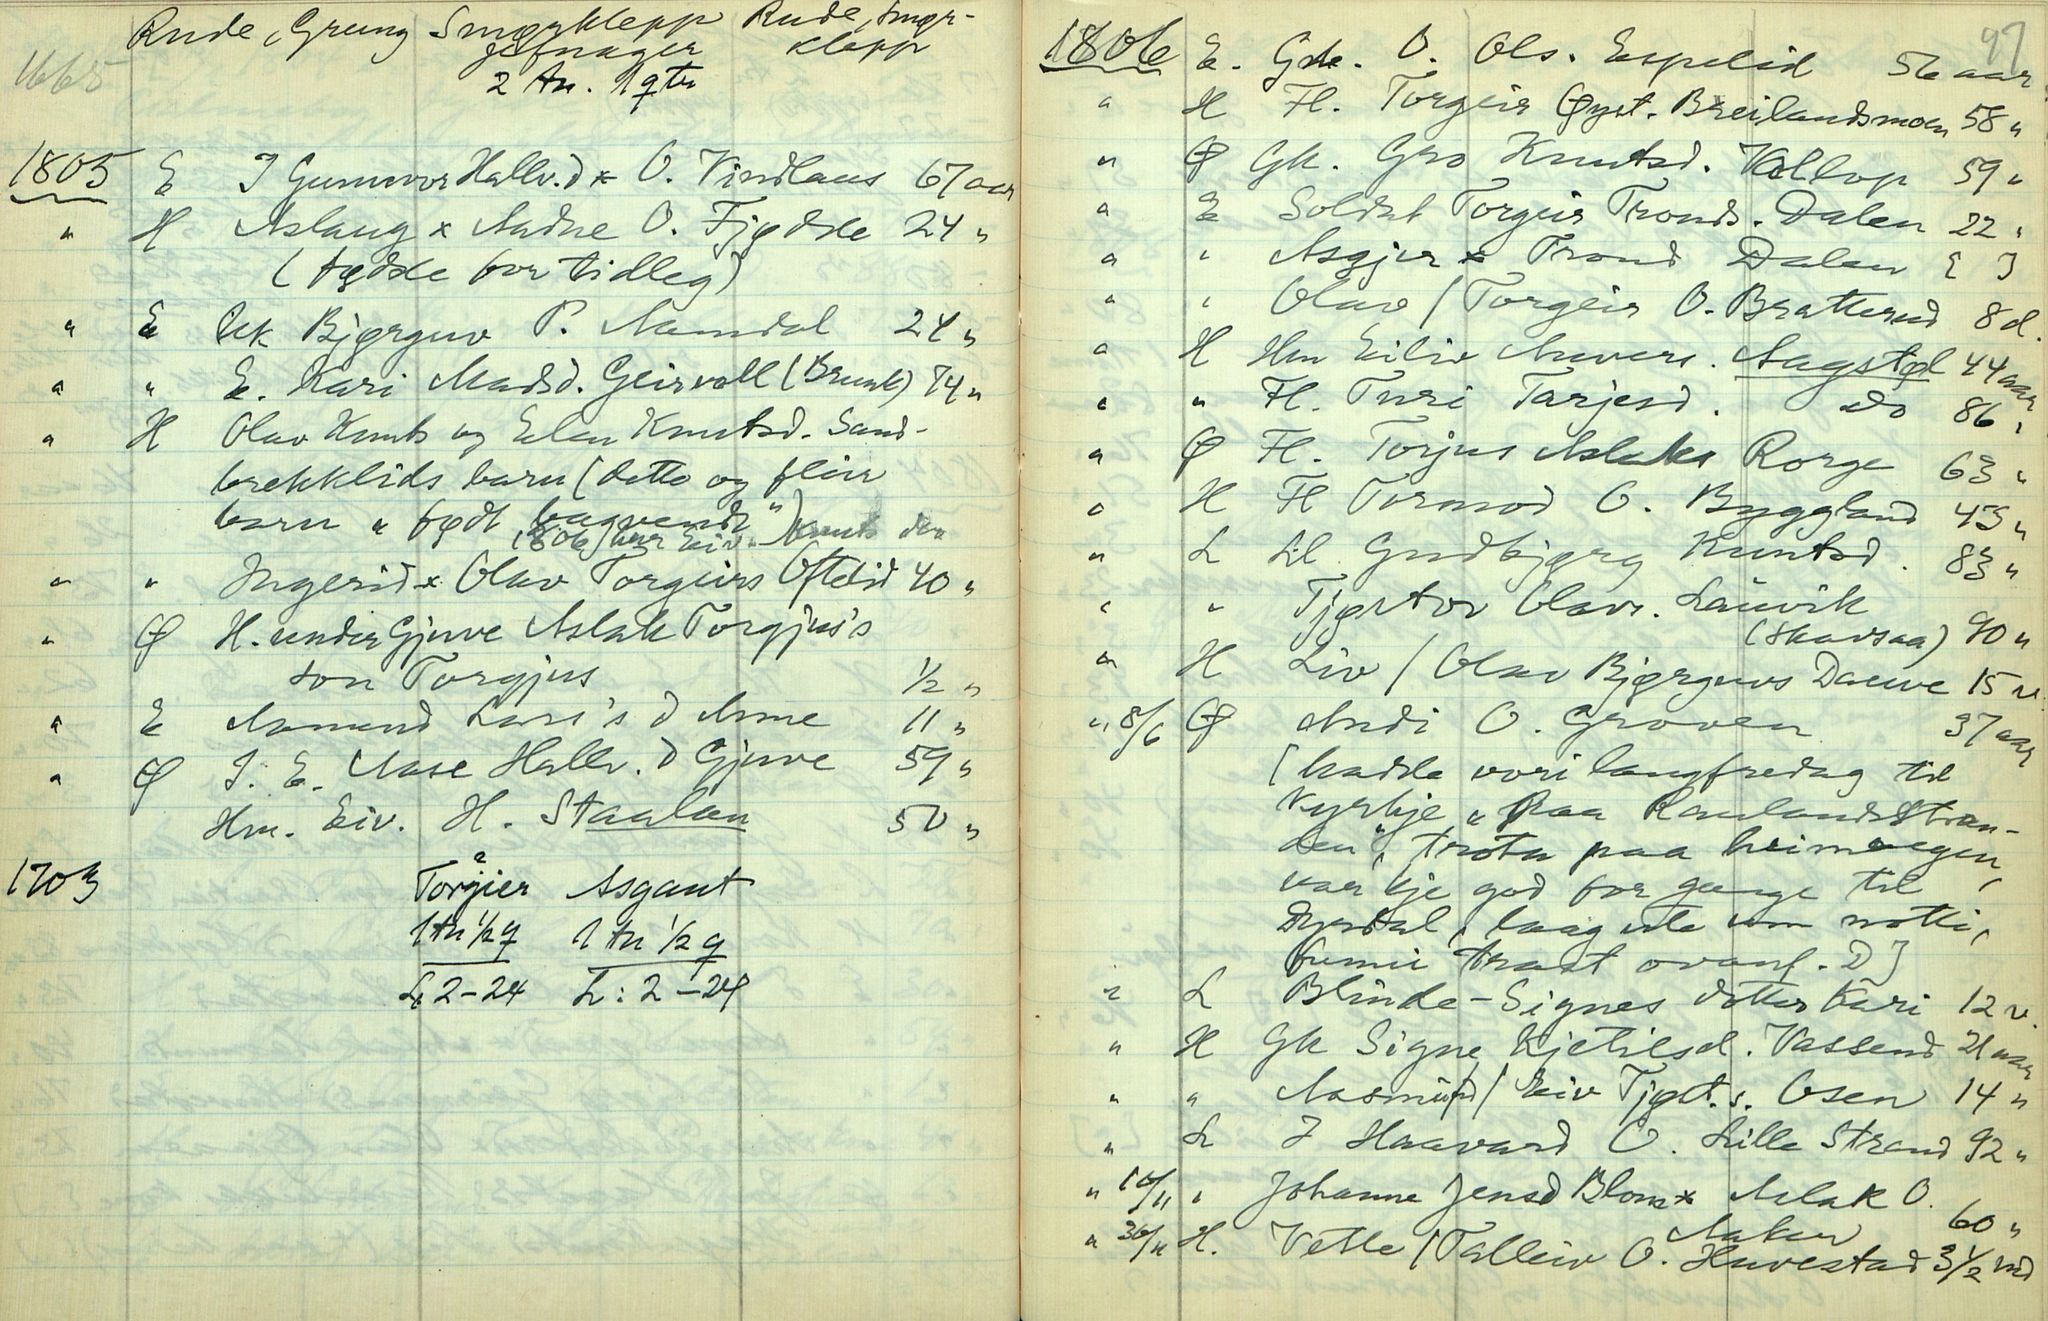 Rude, Grung Smørklepp Rude, Smør-
jofnager klepp
1665 2 tn. 1 qtr
1805 E I Gunnvor Hallv.d x O. Vindlaus 67 aar
" H Aslaug x Aadne O. Fjødde 24 "
(fødde for tidleg)
" E Uk Bjørguv P. Aamdal 24 "
" " E. Kari Madsd. Geirvoll (Brunk) 74 "
" H Olav Knuts og Eilen Knutsd. Sand-
brekklids barn (dette og fleir
barn " født bagvendt")
1806
" " Ingerid x Olav Torgeirs Oftelid 40 "
" Ø H. under Gjuve Aslak Torgjus's
son Torgjus 1/2 "
" E Aamund Lars's d Anne 11 "
" Ø I. E. Aase Hallv. d Gjuve 59 "
Hm. Eiv. H. Staalen 50 "
1703 Torgier Asgaut
1 tn 1/2 q 1 tn 1/2 q
L 2-24 L: 2-24
97
1806 E. Gdk. O. Ols. Espelid 56 aar
" H Fl. Torgeir Øyst. Breilandsmoen 58 "
" Ø Gk. Gro Knutsd. Kollop 59 "
" E Soldat Torgeir Tronds. Dalen 22 "
" " Asgjer x Trond Dalen [ ]
" " Olav / Torgeir O. Bratterud 8 d.
" H Hm Eiliv Anvers. Aagstøl 44 aar
" " Fl. Turi Tarjesd. do 86 "
" Ø Fl. Torjus Aslaks Rorge 63 "
" H Fl Tormod O. Byggland 43 "
" L Ll Gudbjørg Knutsd. 83 "
" " Tjøstov Olavs. Lauvik
(Skavsaa) 90 "
" H Liv / Olav Bjørguvs Dauve 15 v.
" 8/6 Ø Andi O. Groven 37 aar
[hadde vori langfredag til
Kyrkje " Paa Raulandsstran-
den", trøtn paa heimvegen,
var kje god for gange til
Dyrdal, laag ute um notti,
funni trast ovanf. D]
" L Blinde-Signes dotter Kari 12 v.
" H Gk Signe Kjetilsd. Vassend 21 aar
" " Aasmund / Eiv Tjøst.s. Osen 14 "
" L I Haavard O. Lille Strand 92 "
" 16/11 " Johanne Jensd Blom x Aslak O.
Naker 60 "
" 30/11 H. Vetle / Talleiv O. Huvestad 3 1/2 md